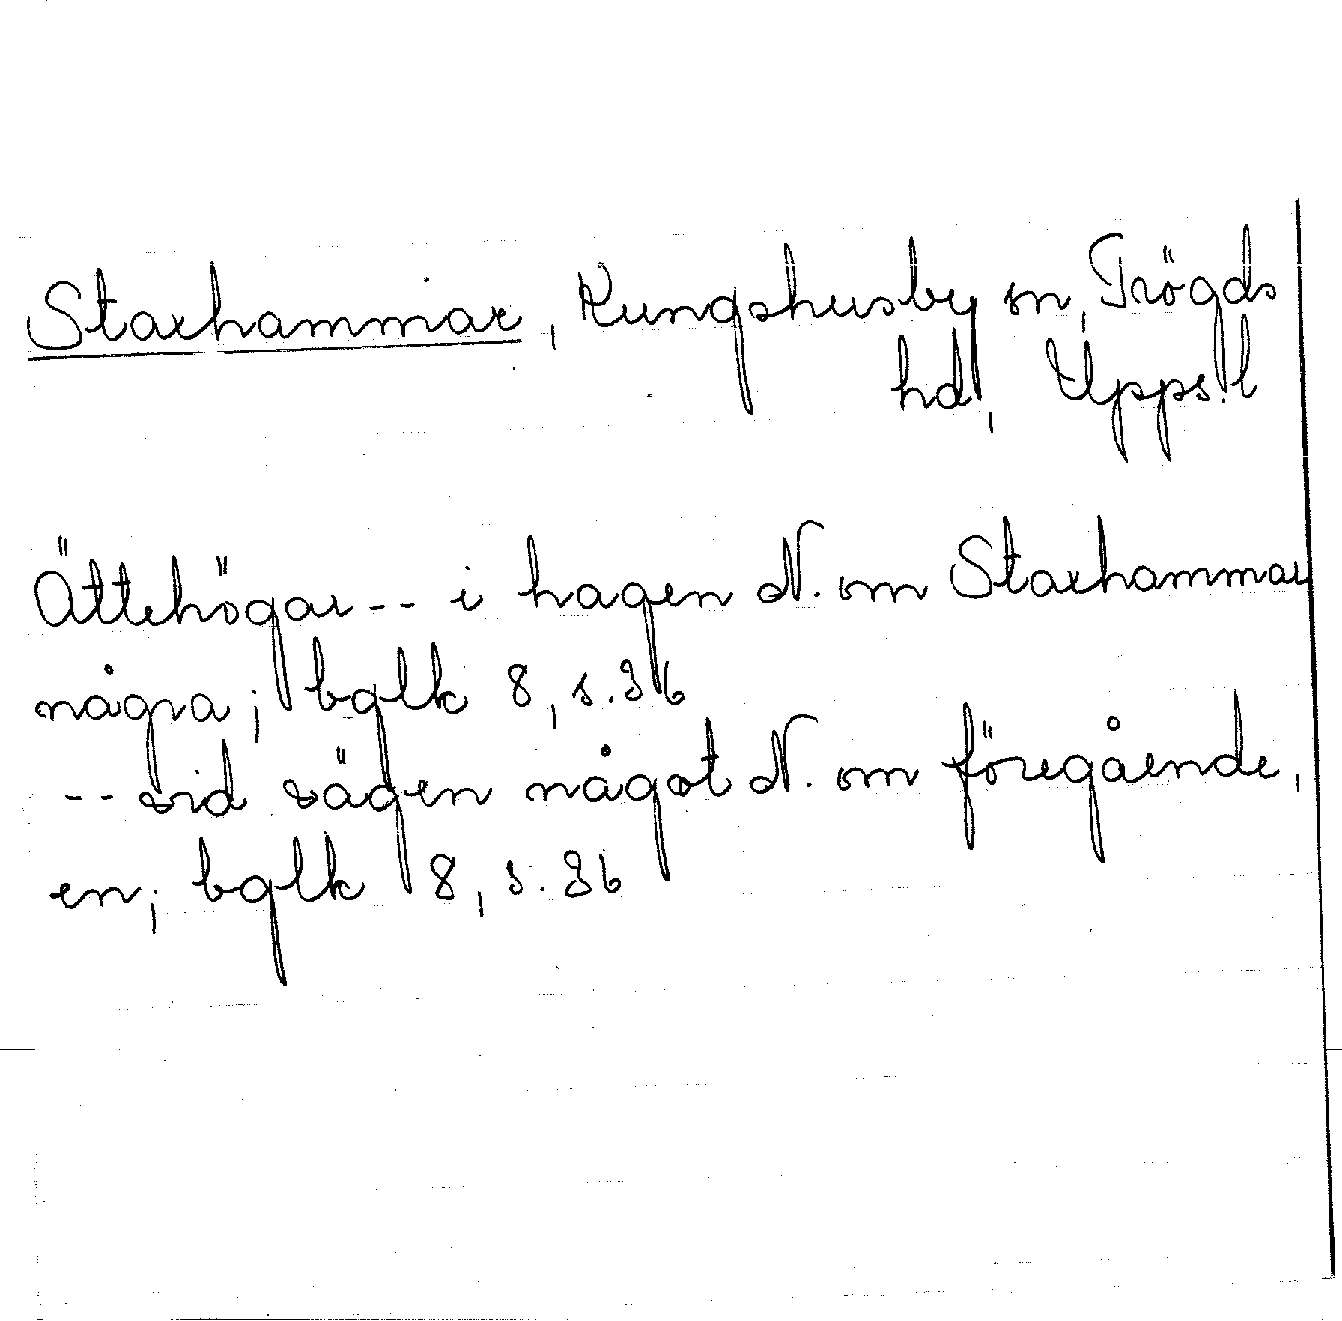 Starhammar, Kungshusby sn, Trögds
hd, Upps.l
Ättehögar -- i hagen N. om Starhammar
några; bglk 8, s.36
-- vid vägen något N. om föregående,
en; bglk 8, s.36